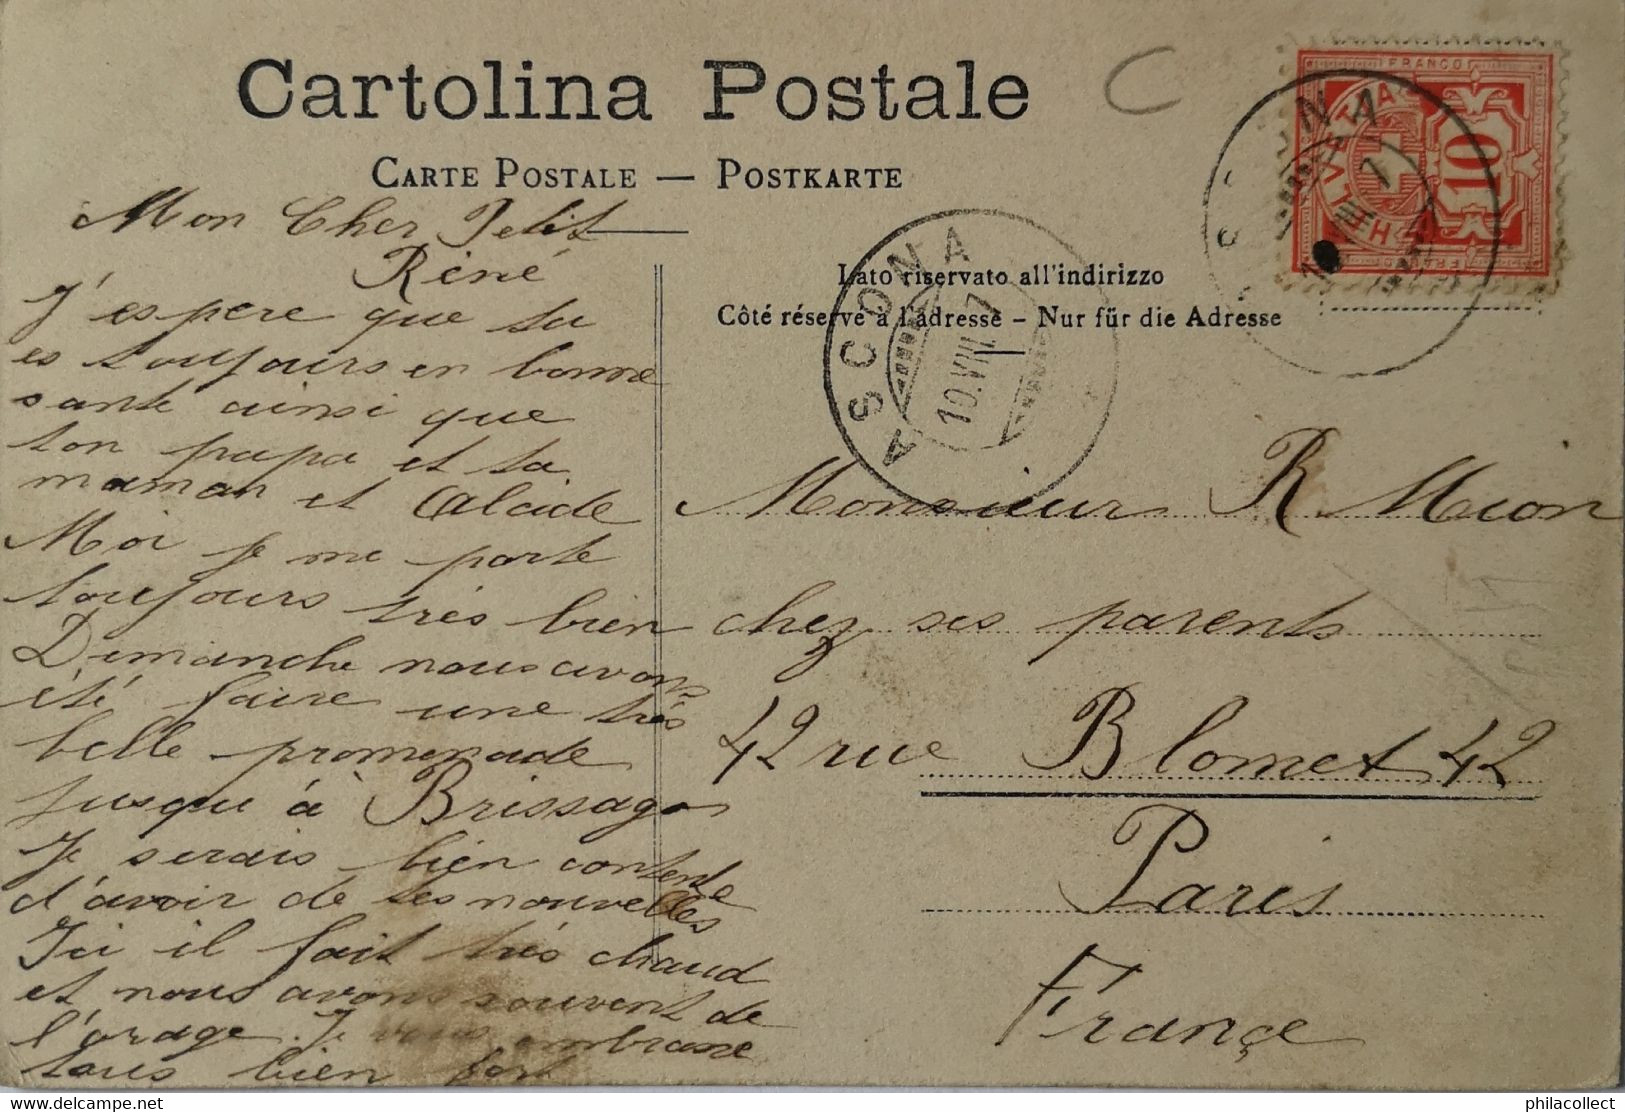 Cartolina Postale
CARTE POSTALE — POSTKARTE
Lato riservato all'indirizzo
Côté réservé à l'adresse - Nur für die Adresse
FRANCO
HELVETIA
10
ASCONA
10.VIII.
Mon Cher Petit
Réné
J'espere que tu
es toujours en bonne
santé ainsi que
ton papa et ta
maman et Alcide
Moi je me porte
toujours très bien
Dimanche nous avons
été faire une très
belle promenade
jusqu'à Brissago
Je serais bien contente
d'avoir de tes nouvelles
Ici il fait très chaud
et nous avons souvent de
l'orage. Je vous embrasse
tous bien fort
Monsieur R Mion
chez ses parents
42 rue Blomet 42
Paris
France
delcampe.net
philacollect